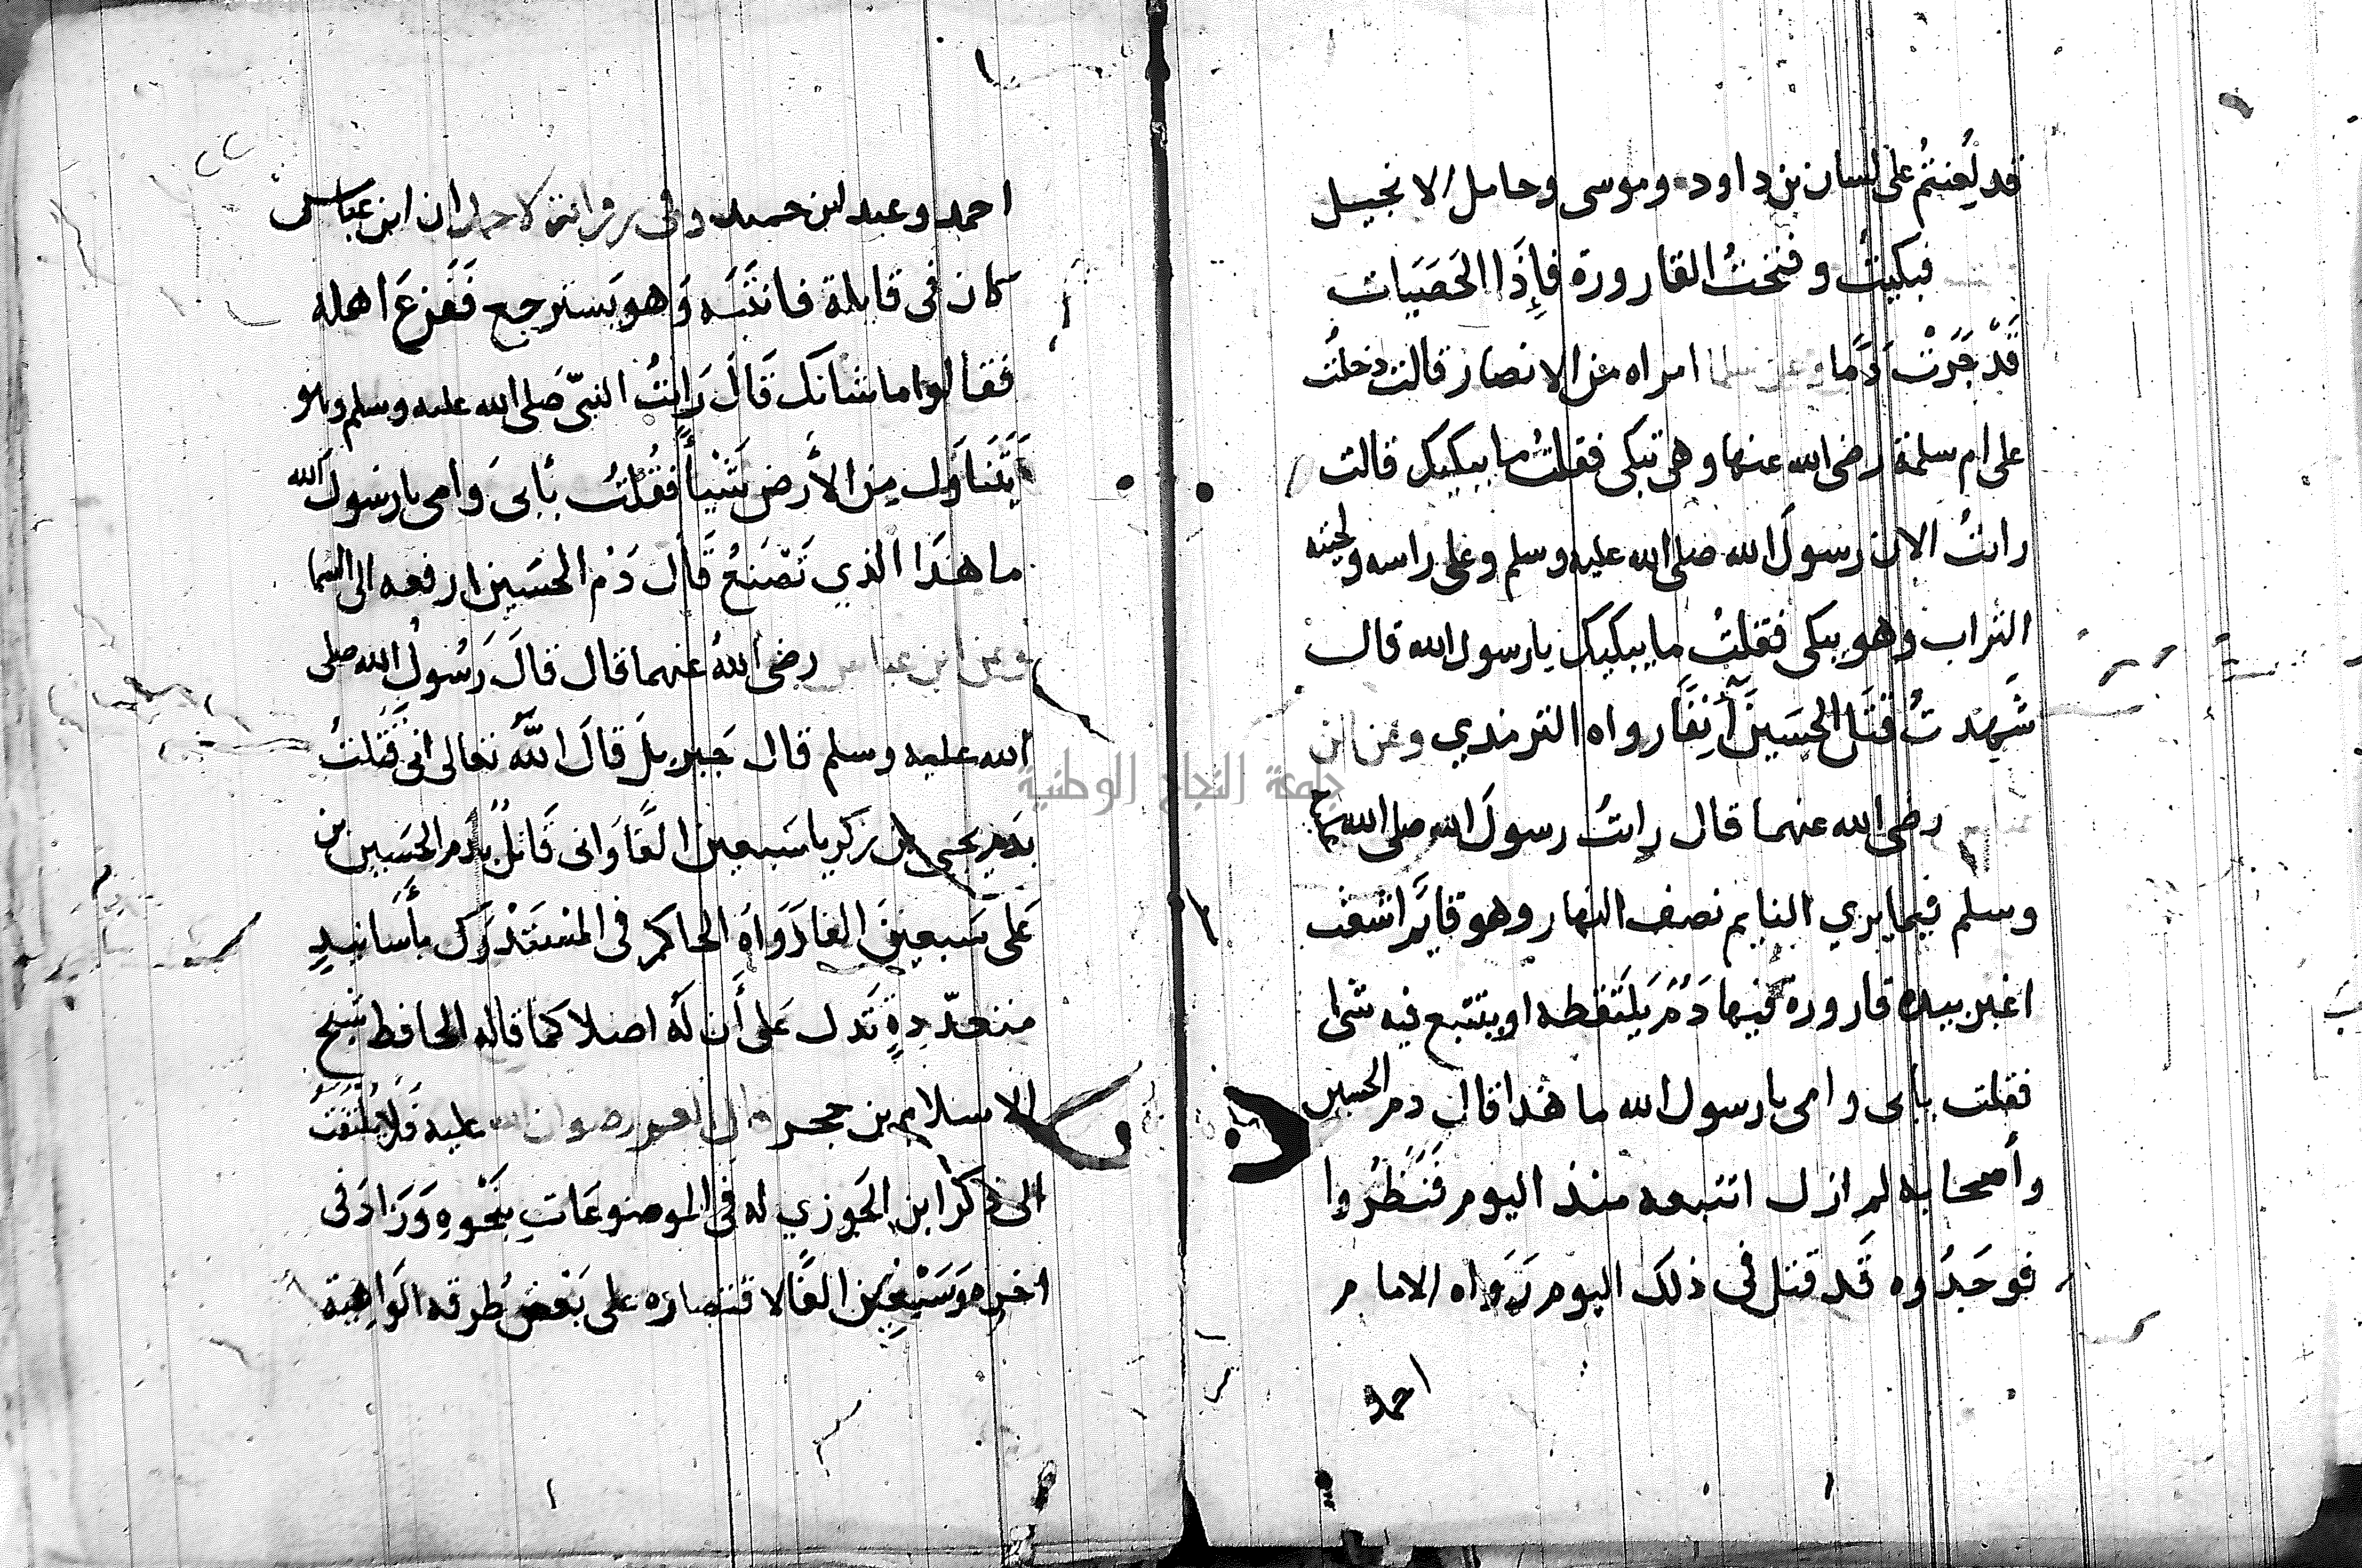 قد لُعِنتُم على لسان بن داود وموسى وحامل الانجيل
فبكيتُ وفتحتُ القارورة فإِذَا الحَصَيَات
قَدْ جَرَتْ دَمًا وعن سلما امراه من الانصار قالت دخلتُ
على ام سلمة رضى الله عنها وهى تبكى فقلتُ ما يبكيك قالت
رايتُ الان رسولَ الله صلى الله عليه وسلم وعلى راسه ولحيته
التراب وهو يبكى فقلتُ ما يبكيك يا رسول الله قال
شَهِدتُ قَتَل الحسَين آنِفًا رواه الترمذي وعن ابن
رضى الله عنهما قال رايتُ رسولَ الله صلى الله
وسلم فيما يري النايم نصف النهار وهو قايم اشعث
اغبر بيده قارورة فيها دَمٌ يَلتَقطه او يتتبع فيه شيا
فقلت بابى وامى يا رسول الله ما هَذا قال دم الحسين
وأصحابه لم ازل اتتبعه منذ اليوم فَنَظَرُوا
فوجَدُوه قَد قتل فى ذلك اليوم رَوَاه الامام
احمد
احمد وعبد بن حميد وفى رواية لاحمد ان ابن عباس
كان فى قايلة فانتَبَه وَهو يَسترجع فَفَزعَ اهله
فقالوا ما شانك قَالَ رَايتُ النبىّ صَلى الله عليه وسلم وهو
يَتَنَاوَل مِن الأَرض شَيْأً فقُلتُ بأبى وَامى يا رسولَ الله
ما هَذَا الذي تَصْنَعُ قَالَ دَمْ الحسَين ارفعه الى السما
وعن ابن عباس رضى اللهُ عنهما قال قالَ رَسُولُ الله صلى
الله عليه وسلم قال جَبريل قالَ اللَّهُ تعالى انى قَتَلتُ
بدَمِ يحيى بن زكريا سَبعين الفًا وَانى قَاتلٌ بدَم الحسَين بن
عَلى سَبعينَ الفا رَوَاه الحاكم فى المسْتَدْرَك بأَسَانيدٍ
متعدّدةٍ تَدل عَلى أَن لَه اصلا كما قاله الحافظ شيخ
الاسلام بن حجر رضوان الله عليه فَلا يُلتَفَتُ
الى ذكر ابن الجَوزي له فى الموضوعَاتِ بِنَحْوِهِ وَزَادَ فى
اخره وَسَبْعِين الفًا لاقتصاره على بَعْض طُرقه الوَاهِية
جامعة النجاح الوطنية